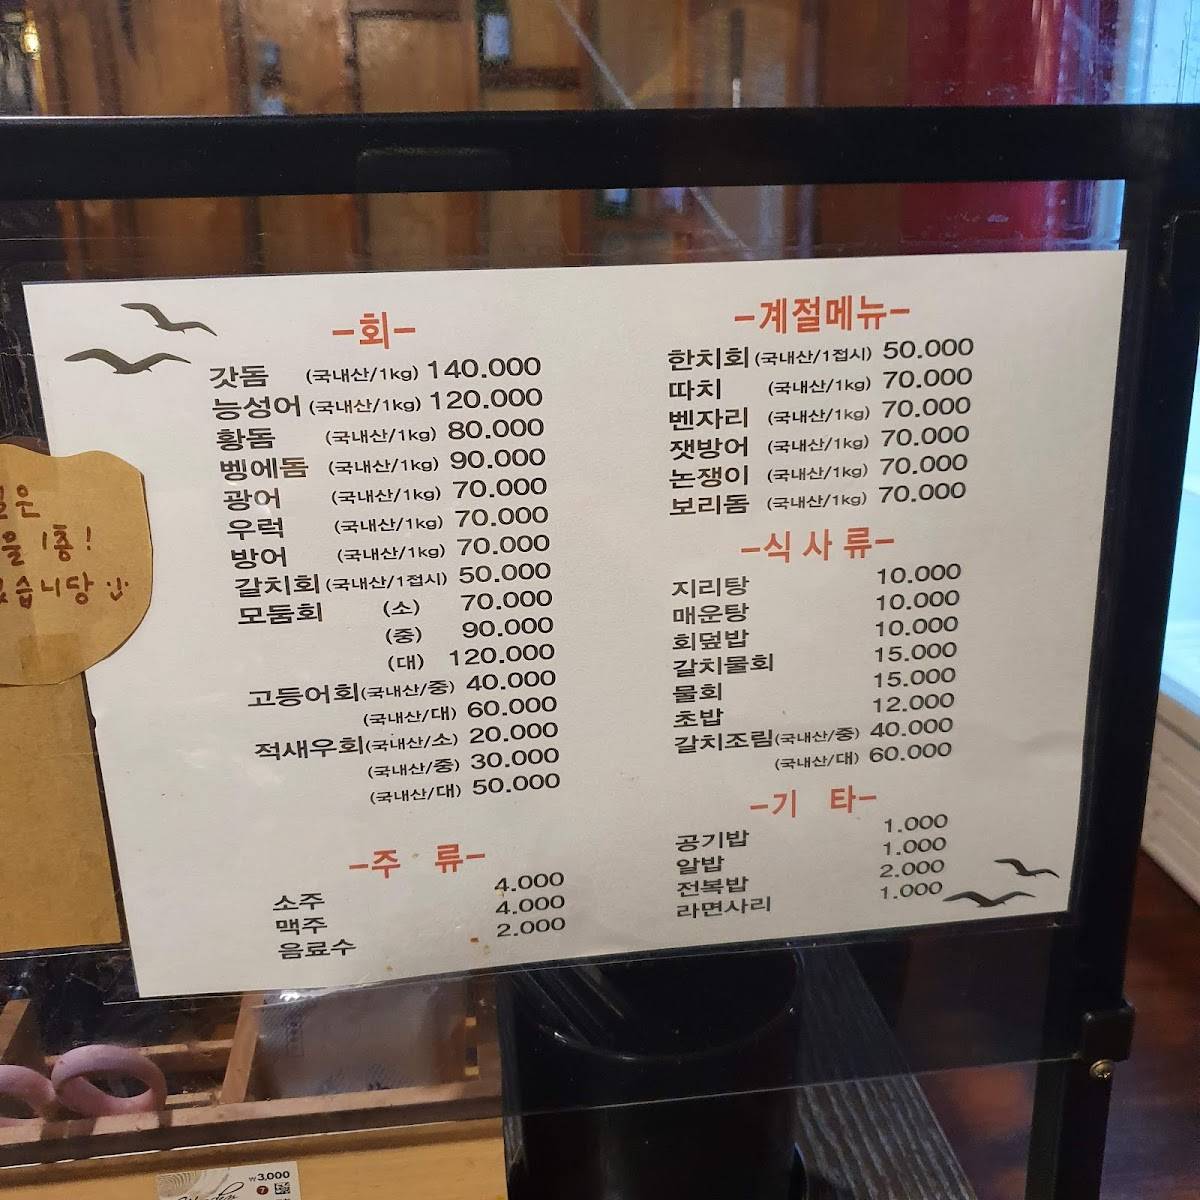 -회-
갓돔 (국내산/1kg) 140.000
능성어 (국내산/1kg) 120.000
황돔 (국내산/1kg) 80.000
벵에돔 (국내산/1kg) 90.000
광어 (국내산/1kg) 70.000
우럭 (국내산/1kg) 70.000
방어 (국내산/1kg) 70.000
갈치회 (국내산/1접시) 50.000
모둠회 (소) 70.000
(중) 90.000
(대) 120.000
고등어회(국내산/중) 40.000
(국내산/대) 60.000
적새우회(국내산/소) 20.000
(국내산/중) 30.000
(국내산/대) 50.000
-주 류-
소주 4.000
맥주 4.000
음료수 2.000
-계절메뉴-
한치회 (국내산/1접시) 50.000
따치 (국내산/1kg) 70.000
벤자리 (국내산/1kg) 70.000
잿방어 (국내산/1kg) 70.000
논쟁이 (국내산/1kg) 70.000
보리돔 (국내산/1kg) 70.000
-식 사 류-
지리탕 10.000
매운탕 10.000
회덮밥 10.000
갈치물회 15.000
물회 15.000
초밥 12.000
갈치조림(국내산/중) 40.000
(국내산/대) 60.000
-기 타-
공기밥 1.000
알밥 1.000
전복밥 2.000
라면사리 1.000
은
을 1층!
습니당
₩3,000
7